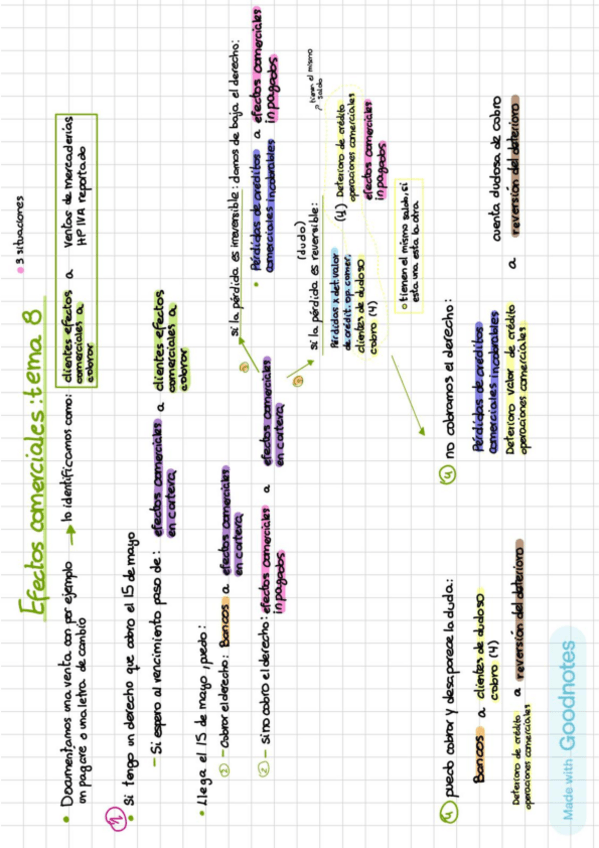 Efectos comerciales: tema 8
• 3 situaciones
• Documentamos una venta con por ejemplo
un pagaré o una letra de cambio
→ lo identificamos como:
clientes efectos
comerciales a
cobrar
a
ventas de mercaderías
HP IVA reportado
1
• Si tengo un derecho que cobro el 15 de mayo
- Si espero al vencimiento paso de:
efectos comerciales
en cartera
a
clientes efectos
comerciales a
cobrar
• Llega el 15 de mayo, puedo:
② - Cobrar el derecho: Bancos a efectos comerciales
en cartera
② - Si no cobro el derecho: efectos comerciales
inpagados
a
efectos comerciales
en cartera
③
si la pérdida es irreversible: damos de baja el derecho:
• Pérdidas de créditos
comerciales incobrables
a
efectos comerciales
inpagados
③
(dudo)
si la pérdida es reversible:
Pérdidas x det.valor
de crédit. op. comer.
clientes de dudoso
cobro (4)
tienen el mismo
saldo
(4) Deterioro de crédito
operaciones comerciales
efectos comerciales
inpagados
○ tienen el mismo saldo, si
esta una esta la otra
④ puedo cobrar y desaparece la duda:
Bancos a clientes de dudoso
cobro (4)
Deterioro de crédito
operaciones comerciales
a reversión del deterioro
④ no cobramos el derecho:
Pérdidas de créditos
comerciales incobrables
Deterioro valor de crédito
operaciones comerciales
a
cuenta dudosa de cobro
reversión del deterioro
Made with Goodnotes